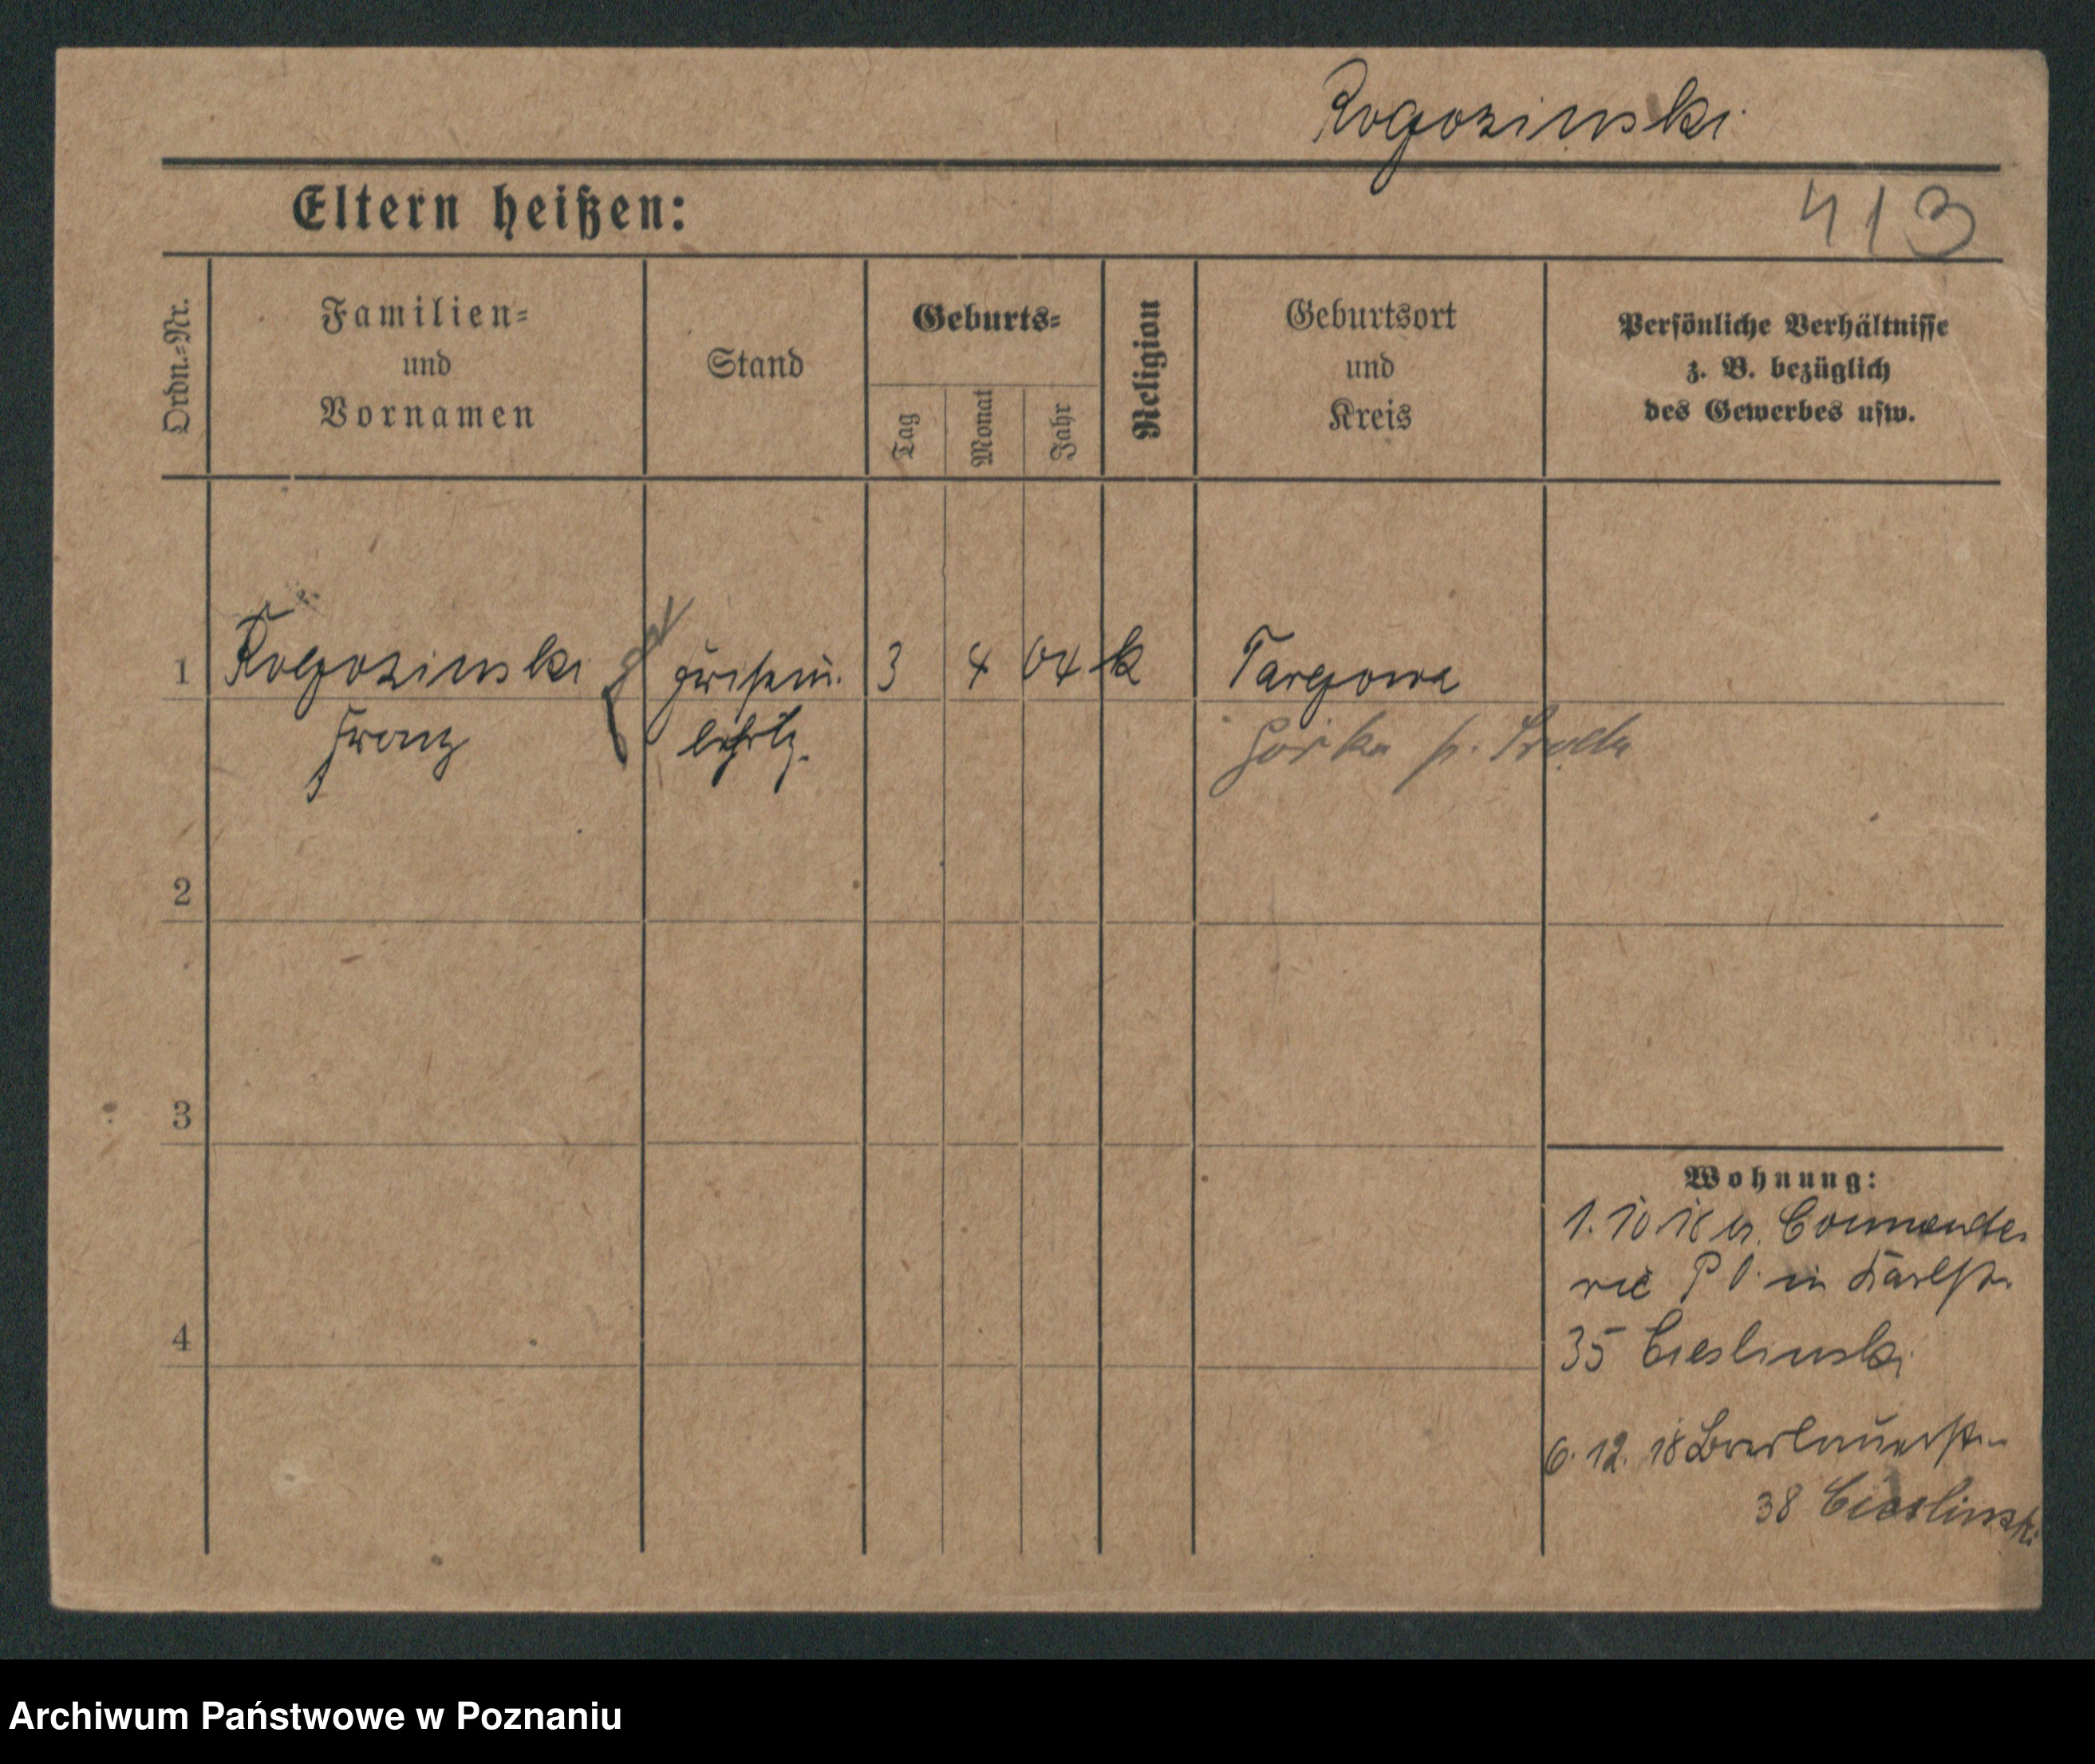 Rogozinski
413
Eltern heißen:
Ordn.-Nr.
Familien-
und
Vornamen
Stand
Geburts-
Tag
Monat
Jahr
Religion
Geburtsort
und
Kreis
Persönliche Verhältnisse
z. B. bezüglich
des Gewerbes usw.
1 Rogozinski 3 4 04 k Targowa
Franz Górka p. Sroda
2
3
4
Wohnung:
1. 10 18 Commende-
rie in Karlstr.
35 Cieslinski
6. 12. 18 Breslauerstr.
38 Cieslinski
Archiwum Państwowe w Poznaniu